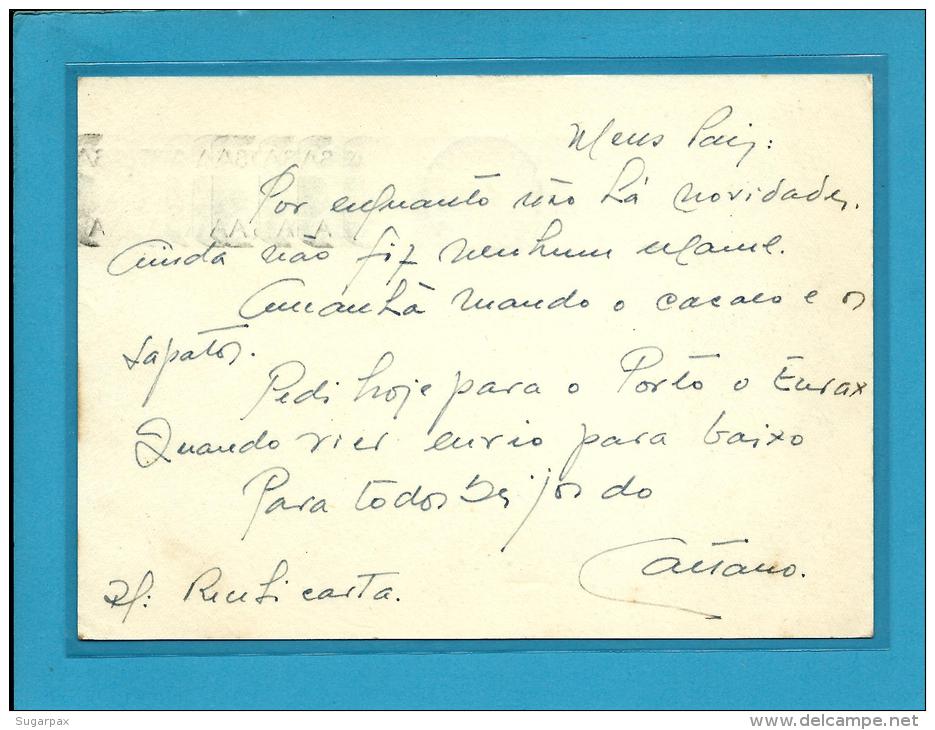 Meus Pais:
Por enquanto não há novidades.
Ainda não fiz nenhum exame.
Amanhã mando o casaco e os
sapatos.
Pedi hoje para o Porto o Eurax
Quando vier envio para baixo
Para todos beijos do
Caetano.
Recebi carta.
Sugarpax
www.delcampe.net